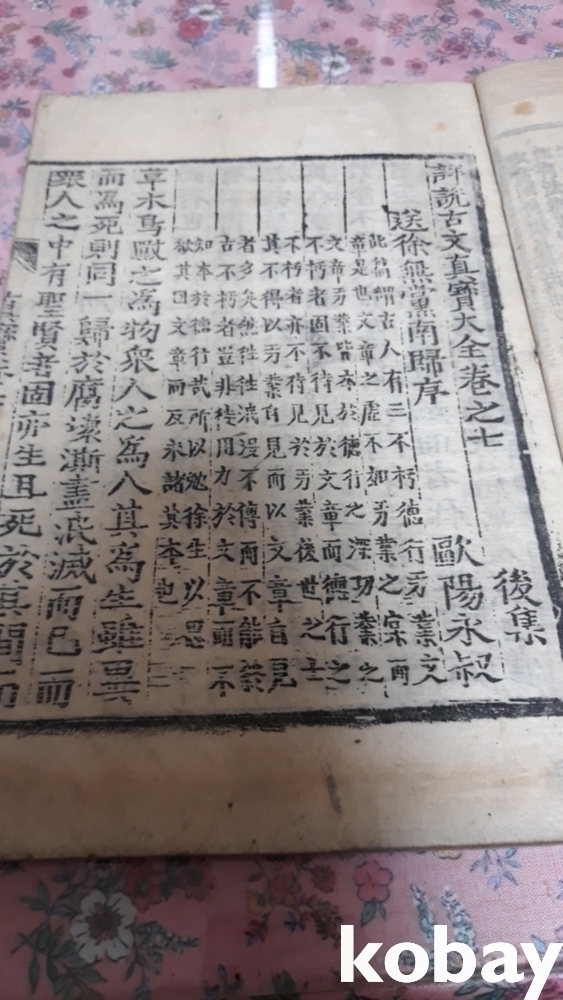 詳說古文真寶大全卷之七
後集
送徐無黨南歸序
歐陽永叔
此篇謂古人有三不朽德行功業文
章是也文章之虛不如功業之實而
文章功業皆本於德行之深功業之
不朽者固不待見於文章而德行之
不朽者亦不待見於功業後世之士
其不得以功業自見而以文章自見
者多矣然徃徃泯沒不傳而不能
古不朽者豈非徒用力於文章而不
知本於德行哉所以勉徐生以思
欲其因文章而反求諸其本也
草木鳥獸之為物衆人之為人其為生雖異
而為死則同一歸於腐壞澌盡泯滅而已而
衆人之中有聖賢者固亦生且死於其間而
kobay